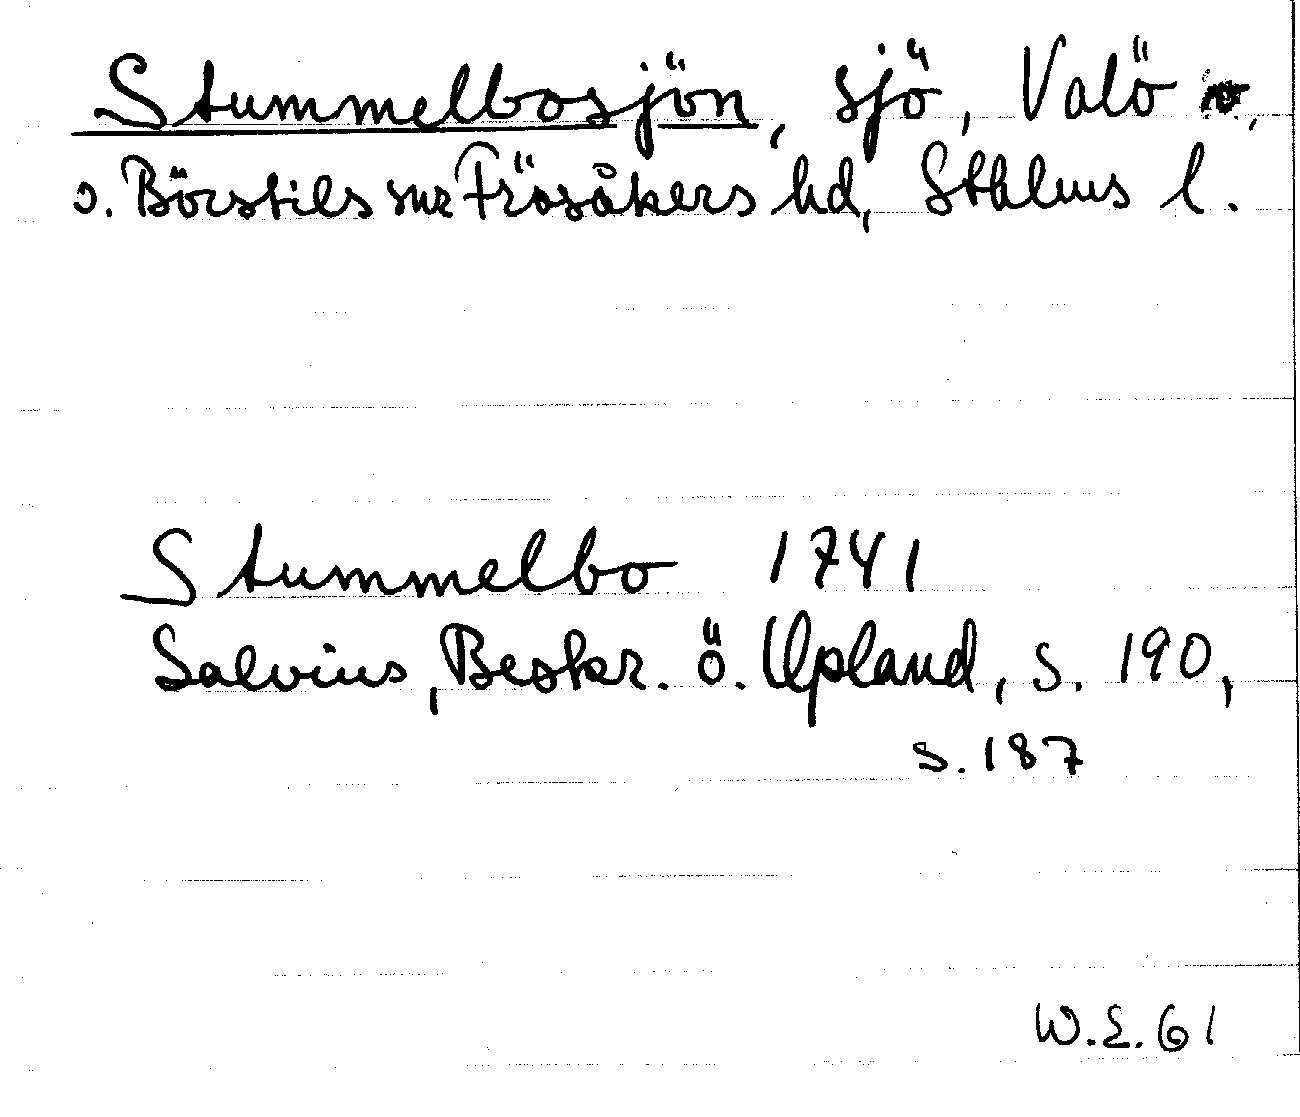 Stummelbosjön, sjö, Valö,
o. Börstils snr Frösåkers hd, Sthlms l.
Stummelbo 1741
Salvius, Beskr. ö. Upland, s. 190,
s. 187
W.E. 61